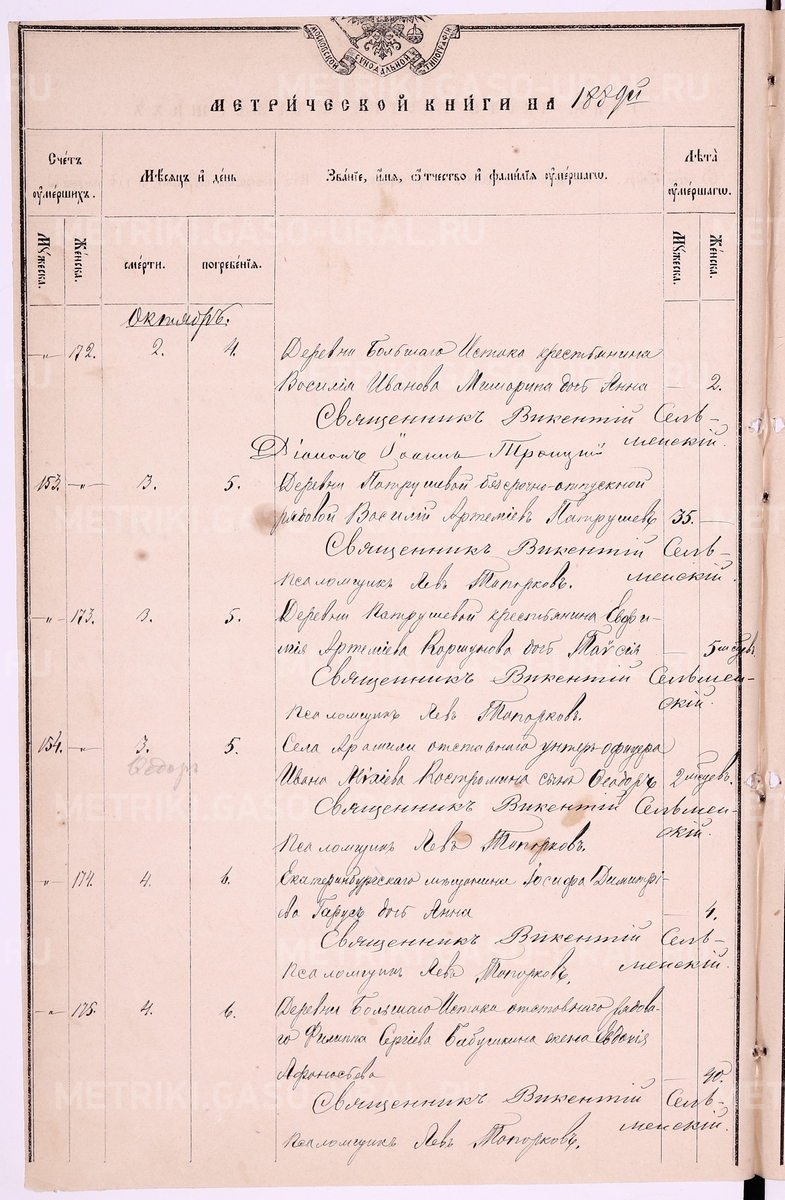 МОСКОВСКОЙ СѴНОДАЛЬНОЙ ТИПОГРАФІИ
МЕТРИ́ЧЕСКОЙ КНИ́ГИ НА 1889й
Сче́тъ ᲂу҆ме́ршихъ.
Мѣ́сяцъ и҆ де́нь
Зва́нїе, и҆́мя, ѻ҆́тчество и҆ фами́лїя ᲂу҆ме́ршагѡ.
Лѣ́та ᲂу҆ме́ршагѡ.
Мꙋ́жеска. Же́нска. сме́рти. погребе́нїя. Мꙋ́жеска. Же́нска.
Октябрь.
„ 172. 2. 4. Деревни Большаго Истока крестьянина
Василія Ивanова Мишарина дочь Анна — 2.
Священникъ Викентій Сельменскій.
Діаконъ Іоаннъ Троицкій
153. „ 3. 5. Деревни Патрушевой безсрочно-отпускной
рядовой Василій Артеміевъ Патрушевъ 35. —
Священникъ Викентій Сельменскій.
Псаломщикъ Левъ Топорковъ.
„ 173. 3. 5. Деревни Патрушевой крестьянина Евфи-
мія Артеміева Коршунова дочь Таисія — 5 мѣсяцевъ.
Священникъ Викентій Сельменскій.
Псаломщикъ Левъ Топорковъ.
154. „ 3. 5. Села Арамили отставнаго унтеръ офицера
Ѳедоръ
Ивана Костромина сынъ Ѳеодоръ 2 мѣсяцевъ.
Священникъ Викентій Сельменскій.
Псаломщикъ Левъ Топорковъ.
„ 174. 4. 6. Екатеринбургскаго мѣщанина Іосифа Димитрі-
ева Гарусъ дочь Анна — 4.
Священникъ Викентій Сельменскій.
Псаломщикъ Левъ Топорковъ.
„ 175. 4. 6. Деревни Большаго Истока отставнаго рядова-
го Филиппа Сергіева Бабушкина жена Евдокія
Афанасьева — 90.
Священникъ Викентій Сельменскій.
Псаломщикъ Левъ Топорковъ.
METRIKI.GASO-URAL.RU